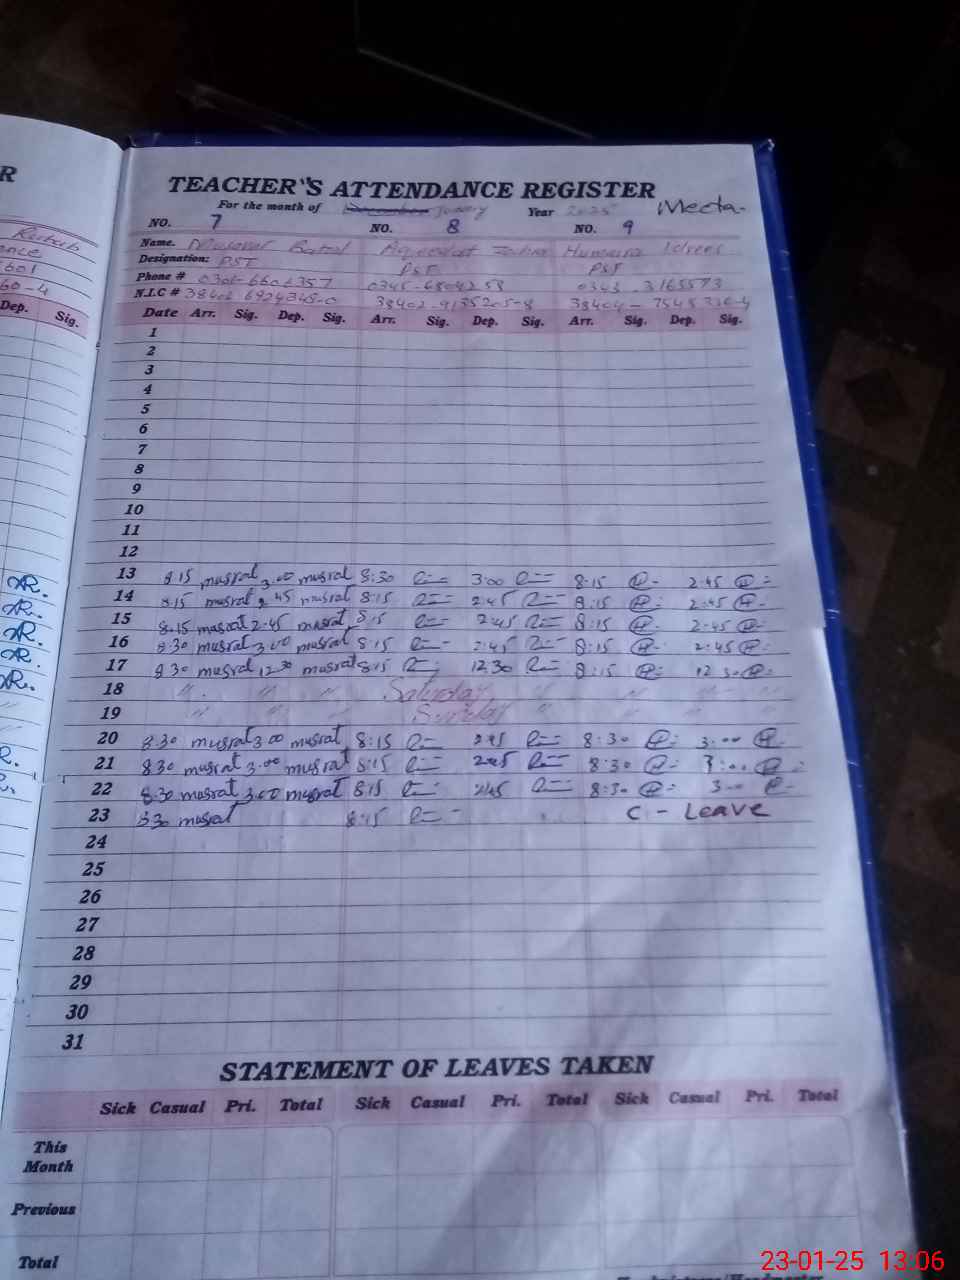 R
TEACHER'S ATTENDANCE REGISTER
For the month of January Year 2025 Meeta.
NO. 7 NO. 8 NO. 9
Rubab
Name. Batool Humaira
Designation: PST PST PST
601
Phone # 0345-6804253 0343.3165573
60-4
N.I.C # 38402-9135205-8
Dep. Sig.
Date Arr. Sig. Dep. Sig. Arr. Sig. Dep. Sig. Arr. Sig. Dep. Sig.
1
2
3
4
5
6
7
8
9
10
11
12
13 8.15 musrat 3.00 musrat 8:30 3:00 8-15 2.45
14 8.15 musrat 2.45 musrat 8:15 2:45 8:15 2:45
15 8.15 musrat 2.45 musrat 8:15 2:45 8:15 2:45
16 8.30 musrat 3.00 musrat 8:15 2:45 8:15 2:45
17 8.30 musrat 12.30 musrat 8:15 12.30 8:15 12:30
18 " " " Saturday " " "
19 " " " Sunday " " "
20 8.30 musrat 3.00 musrat 8:15 2:45 8:30 3:00
21 8.30 musrat 3.00 musrat 8:15 2:45 8:30 3:00
22 8.30 musrat 3.00 musrat 8:15 2:45 8:30 3:00
23 8.30 musrat 8:15 C - Leave
24
25
26
27
28
29
30
31
STATEMENT OF LEAVES TAKEN
Sick Casual Pri. Total Sick Casual Pri. Total Sick Casual Pri. Total
This
Month
Previous
Total
23-01-25 13:06